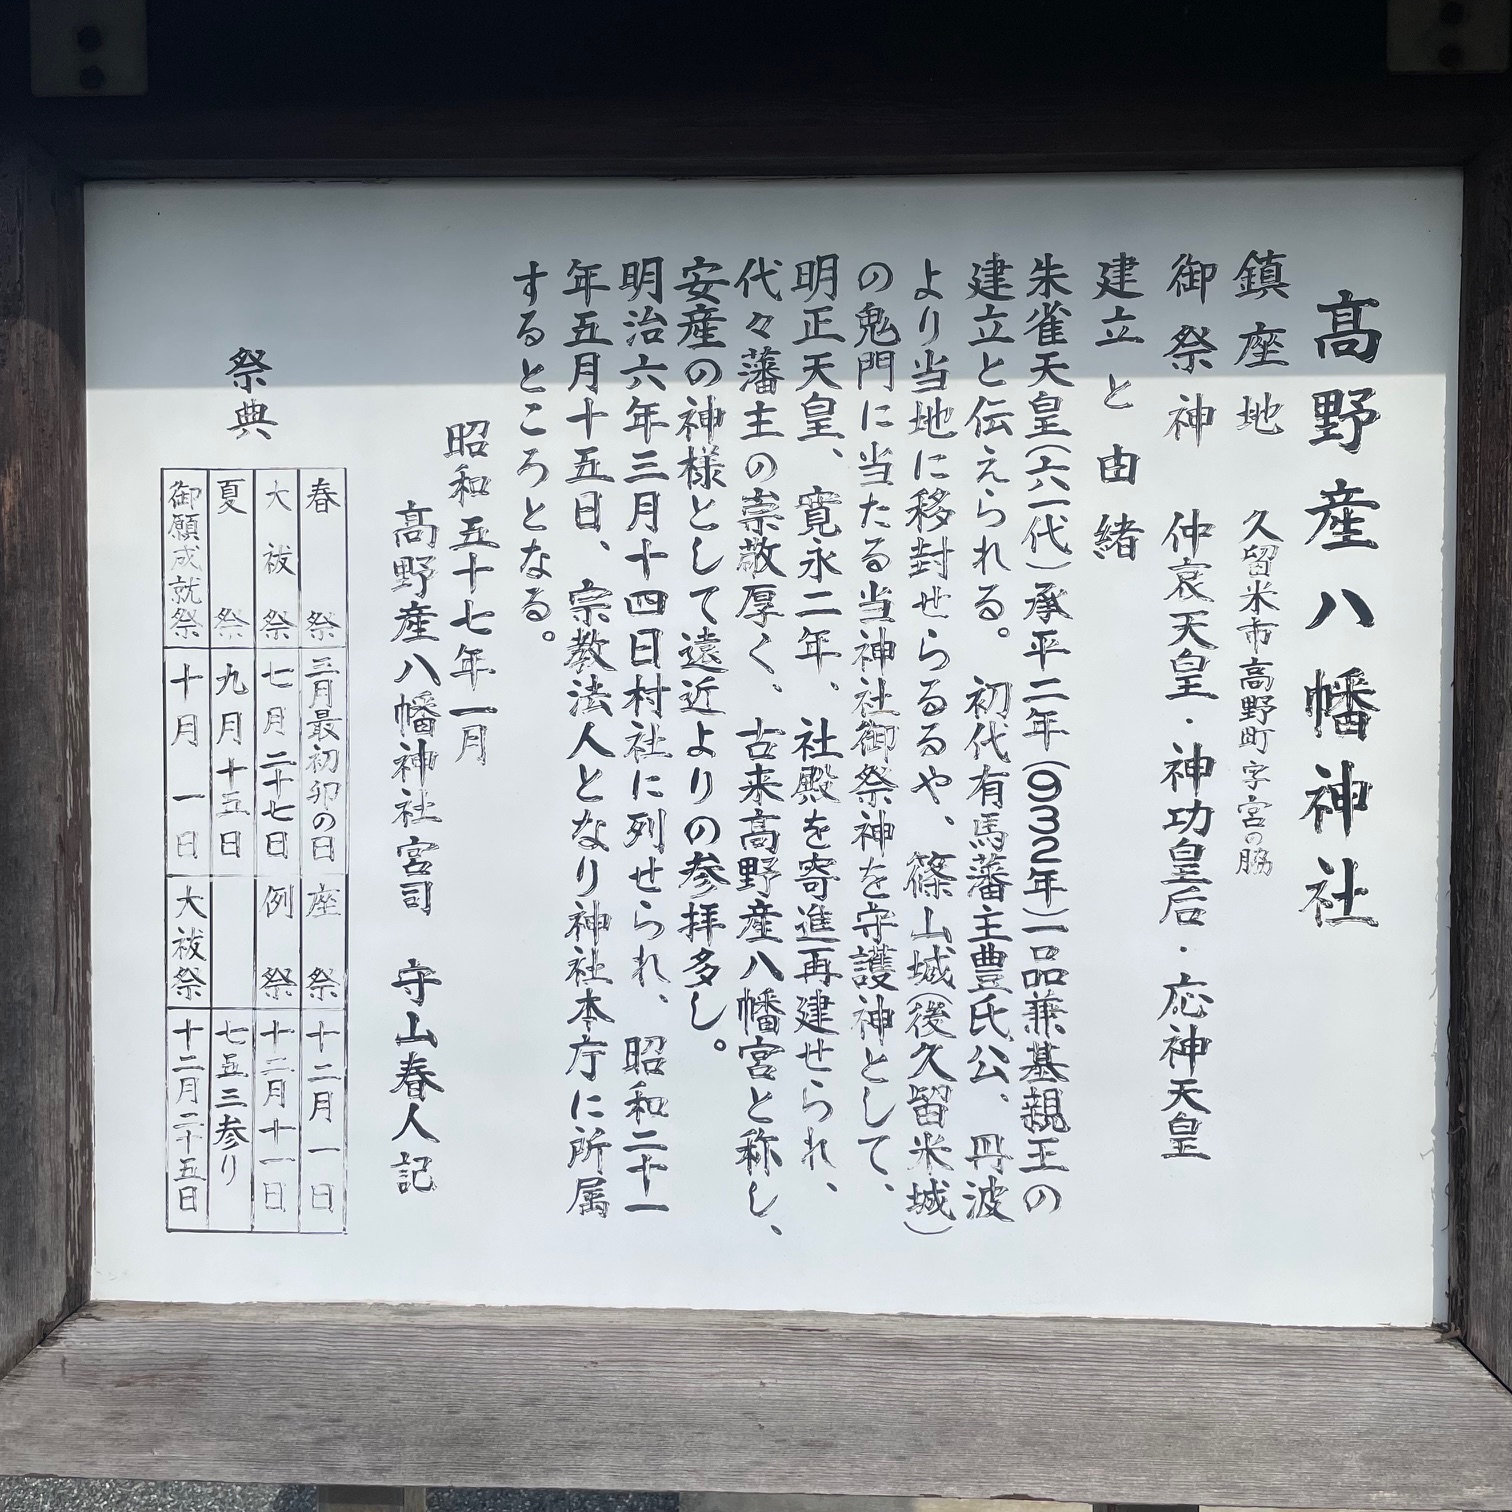 高野産八幡神社
鎮座地 久留米市高野町字宮の脇
御祭神 仲哀天皇・神功皇后・応神天皇
建立と由緒
朱雀天皇(六一代)承平二年(932年)一品兼基親王の
建立と伝えられる。初代有馬藩主豊氏公、丹波
より当地に移封せらるるや、篠山城(後久留米城)
の鬼門に当たる当神社御祭神を守護神として、
明正天皇、寛永二年、社殿を寄進再建せられ、
代々藩主の崇敬厚く、古来高野産八幡宮と称し、
安産の神様として遠近よりの参拝多し。
明治六年三月十四日村社に列せられ、昭和二十一
年五月十五日、宗教法人となり神社本庁に所属
するところとなる。
昭和五十七年一月
高野産八幡神社宮司 守山春人記
祭典
春祭 三月最初卯の日 座祭 十二月一日
大祓祭 七月二十七日 例祭 十二月十一日
夏祭 九月十五日 七五三参り
御願成就祭 十月一日 大祓祭 十二月二十五日